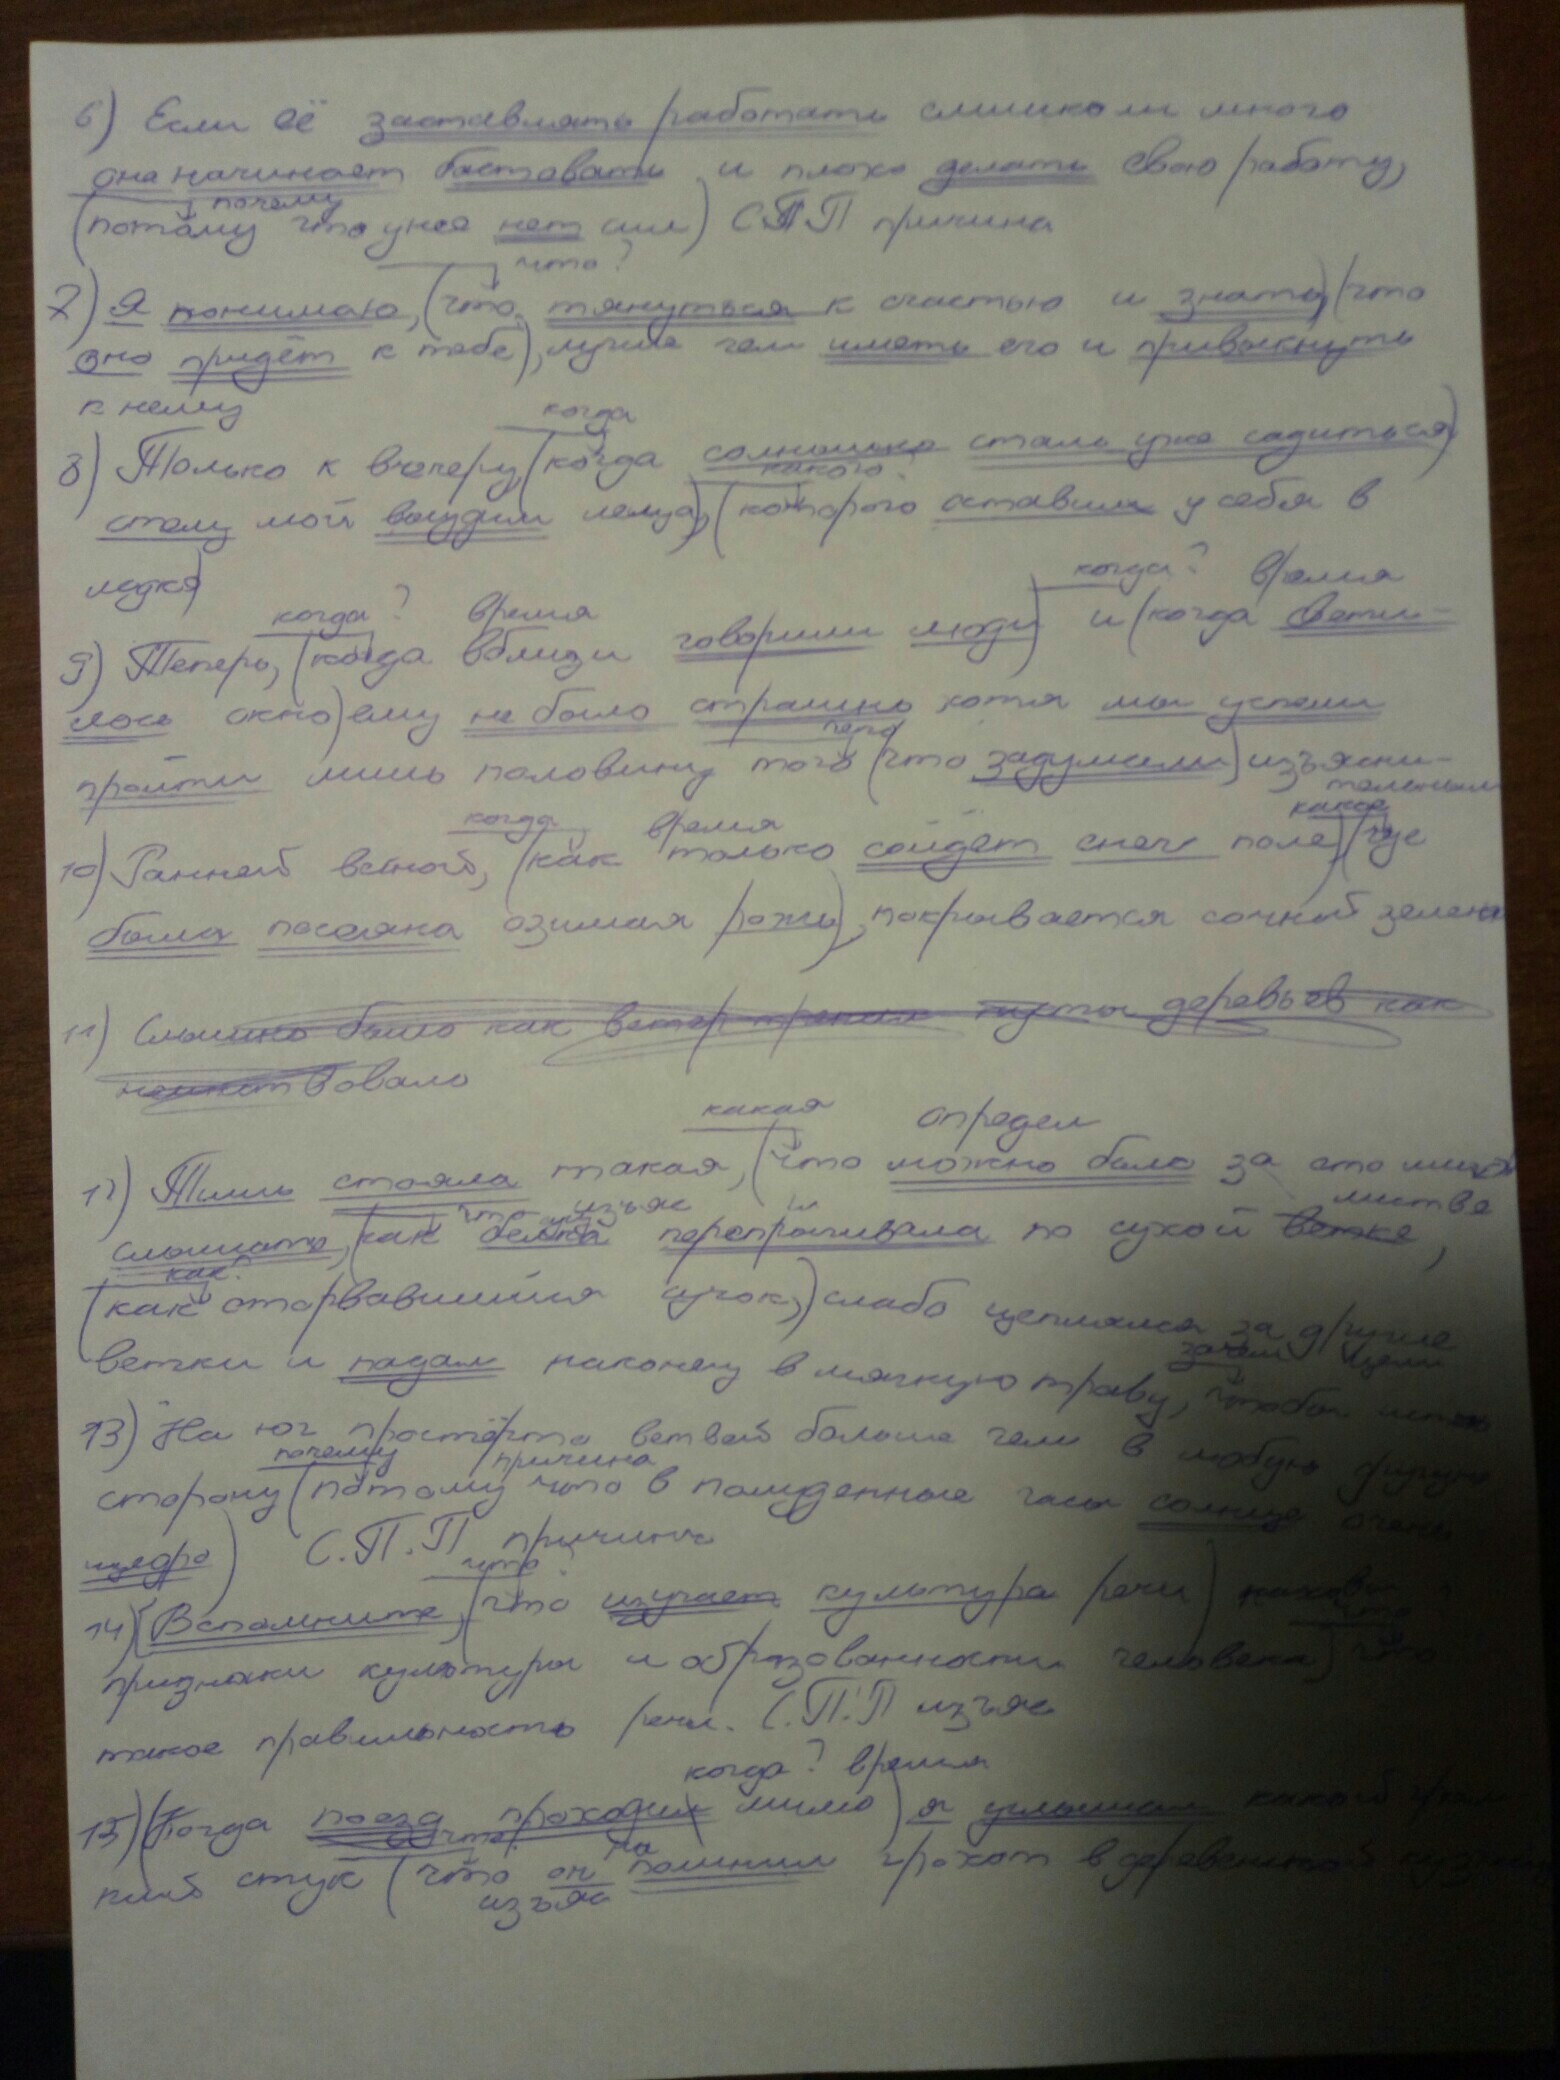 6) Если её заставлять работать слишком много
она начинает бастовать и плохо делать свою работу,
почему
(потому что у нее нет сил) СПП причина
что?
7) Я понимаю, (что тянуться к счастью и знать) (что
оно придёт к тебе), лучше чем иметь его и привыкнуть
к нему
когда
8) Только к вечеру, (когда солнышко стало уже садиться)
какого?
стану мой леща), (которого оставил у себя в
когда? время
когда? время
9) Теперь, (когда вблизи говорили люди) и (когда свети-
лось окно) ему не было страшно хотя мы успели
чего
пройти лишь половину того (что задумали) изъясни-
тельным
когда время
какое
10) Ранней весной, (как только сойдёт снег поле) (где
была посеяна озимая рожь), покрывается сочной
11) Слышно было как ветер кусты деревьев как
какая определ
12) Тишь стояла такая, (что можно было за сто
что изъяс
листве
слышать, (как белка перепрыгивала по сухой ветке,
как?
(как оторвавшийся сучок,) слабо цеплялся за другие
зачем цели
ветки и падал наконец в мягкую траву, чтобы
13) На юг простёрто ветвей больше чем в любую другую
почему причина
сторону (потому что в полуденные часы солнце очень
щедро) С.П.П причина
что
14) [Вспомните, (что изучает культура речи) каковы
что
признаки культуры и образованности человека) что
такое правильность речи. С.П.П изъяс
когда? время
15) (Когда поезд проходил мимо) я услышал какой
что
стук (что он помнил грохот в деревенской
изъяс